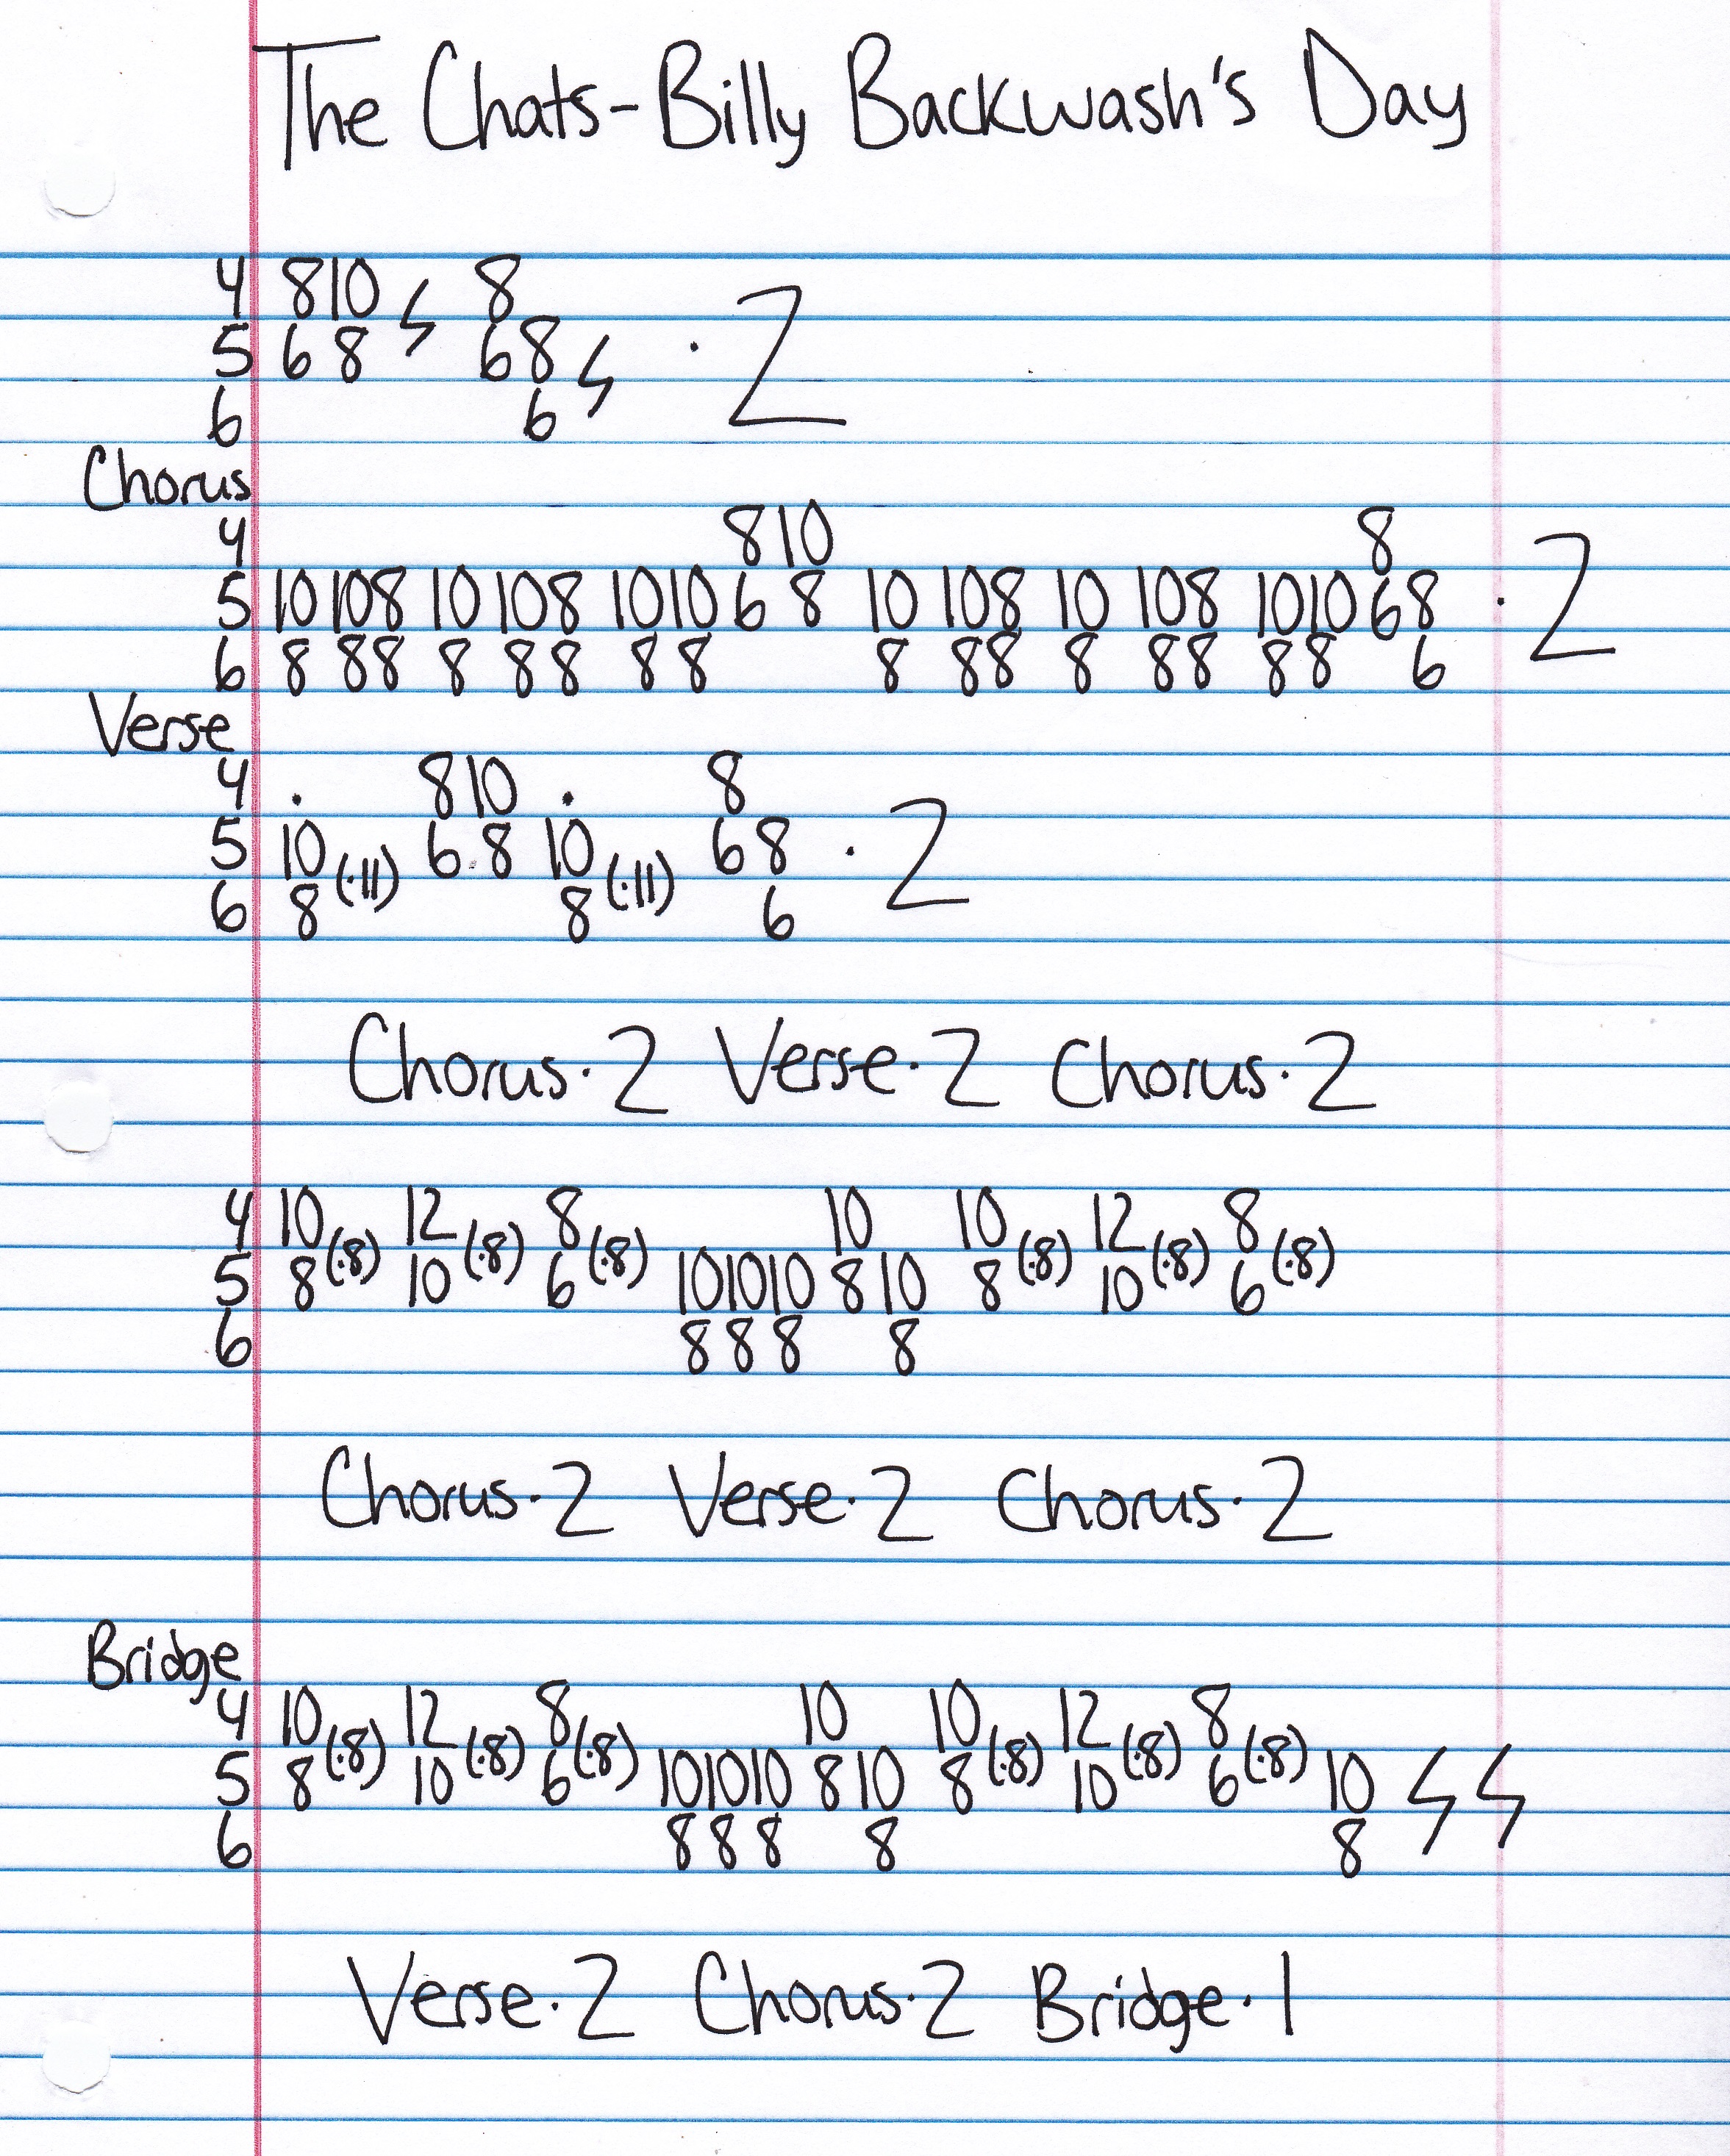 The Chats-Billy Backwash's Day
4 8 10 ϟ 8
5 6 8 6 8 ϟ · 2
6 6
Chorus
4 8 10 8
5 10 10 8 10 10 8 10 10 6 8 10 10 8 10 10 8 10 10 6 8 · 2
6 8 8 8 8 8 8 8 8 8 8 8 8 8 8 8 8 6
Verse
4 · 8 10 · 8
5 10 (·11) 6 8 10 (·11) 6 8 · 2
6 8 8 6
Chorus·2 Verse·2 Chorus·2
4 10 (·8) 12 (·8) 8 (·8) 10 10 (·8) 12 (·8) 8 (·8)
5 8 10 6 10 10 10 8 10 8 10 6
6 8 8 8 8
Chorus·2 Verse·2 Chorus·2
Bridge
4 10 (·8) 12 (·8) 8 (·8) 10 10 (·8) 12 (·8) 8 (·8)
5 8 10 6 10 10 10 8 10 8 10 6 10 ϟ ϟ
6 8 8 8 8 8
Verse·2 Chorus·2 Bridge·1